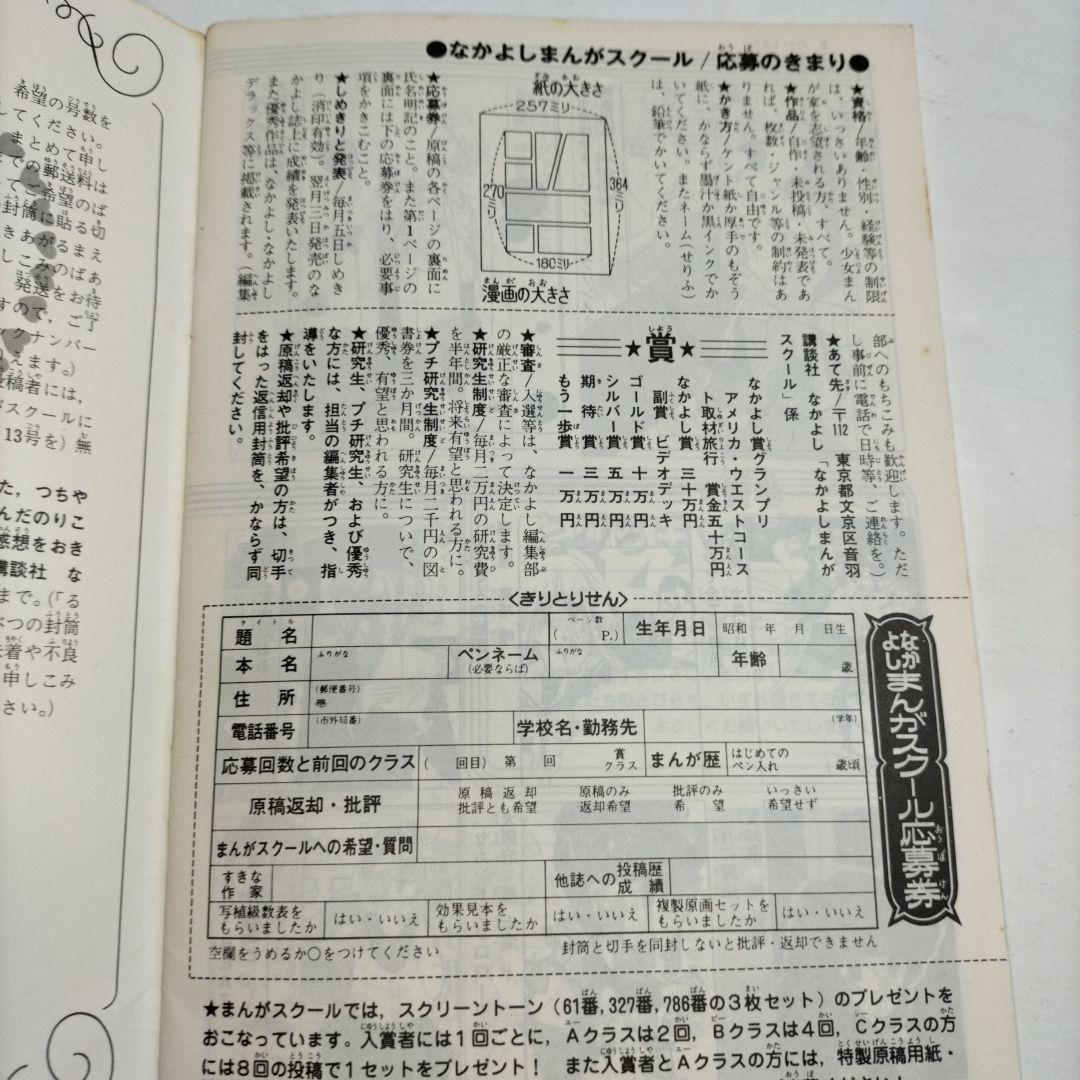 ●なかよしまんがスクール/応募のきまり●
★資格/年齢・性別・経験等の制限
は、いっさいありません。少女まん
が家を志望される方、すべて。
★作品/自作・未投稿・未発表であ
れば、枚数・ジャンル等の制約はあ
りません。すべて自由です。
★かき方/ケント紙か厚手のもぞう
紙に、かならず墨汁か黒インクでか
いてください。またネーム(せりふ)
は、鉛筆でかいてください。
紙の大きさ
257ミリ
364ミリ
270ミリ
180ミリ
漫画の大きさ
★応募券/原稿の各ページの裏面に
氏名明記のこと。また第1ページの
裏面には下の応募券をはり、必要事
項をかきこむこと。
★しめきりと発表/毎月五日しめき
り(消印有効)。翌月三日発売のな
かよし誌上に成績を発表いたします。
また優秀作品は、なかよし・なかよし
デラックス等に掲載されます。(編集
部へのもちこみも歓迎します。ただ
し事前に電話で日時等、ご連絡を。)
★あて先/〒112 東京都文京区音羽
講談社 なかよし「なかよしまんが
スクール」係
★賞★
なかよし賞グランプリ
アメリカ・ウエストコース
ト取材旅行 賞金五十万円
なかよし賞 三十万円
副賞 ビデオデッキ
ゴールド賞 十万円
シルバー賞 五万円
期待賞 三万円
もう一歩賞 一万円
★審査/入選等は、なかよし編集部
の厳正な審査によって決定します。
★研究生制度/毎月二万円の研究費
を半年間。将来有望と思われる方に。
★プチ研究生制度/毎月二千円の図
書券を三か月間。研究生について、
優秀、有望と思われる方に。
★研究生、プチ研究生、および優秀
な方には、担当の編集者がつき、指
導をいたします。
★原稿返却や批評希望の方は、切手
をはった返信用封筒を、かならず同
封してください。
〈きりとりせん〉
なかよしまんがスクール応募券
題名 タイトル
ページ数
( P.)
生年月日
昭和 年 月 日生
本名
ふりがな
ペンネーム
(必要ならば)
ふりがな
年齢
歳
住所
(郵便番号)
電話番号
(市外局番)
学校名・勤務先
(学年)
応募回数と前回のクラス
( 回目) 第 回 賞
クラス
まんが歴
はじめての
ペン入れ
歳頃
原稿返却・批評
原稿返却
批評とも希望
原稿のみ
返却希望
批評のみ
希望
いっさい
希望せず
まんがスクールへの希望・質問
すきな
作家
他誌への投稿歴
成績
写植級数表を
もらいましたか
はい・いいえ
効果見本を
もらいましたか
はい・いいえ
複製原画セットを
もらいましたか
はい・いいえ
空欄をうめるか○をつけてください
封筒と切手を同封しないと批評・返却できません
★まんがスクールでは、スクリーントーン(61番,327番,786番の3枚セット)のプレゼントを
おこなっています。入賞者には1回ごとに、Aクラスは2回、Bクラスは4回、Cクラスの方
には8回の投稿で1セットをプレゼント! また入賞者とAクラスの方には、特製原稿用紙・
希望の号数を
してください。
まとめて申し
までの郵送料は
てご希望のば
封筒に貼る切
きあがるまえ
しこみのばあ
発送をお待
すので、ご了
ックナンバー
りえます。)
投稿者には、
がスクールに
13号を)無
た,つちや
んだのりこ
感想をおき
講談社 な
まで。(「る
べつの封筒
未着や不良
申しこみ
さい。)